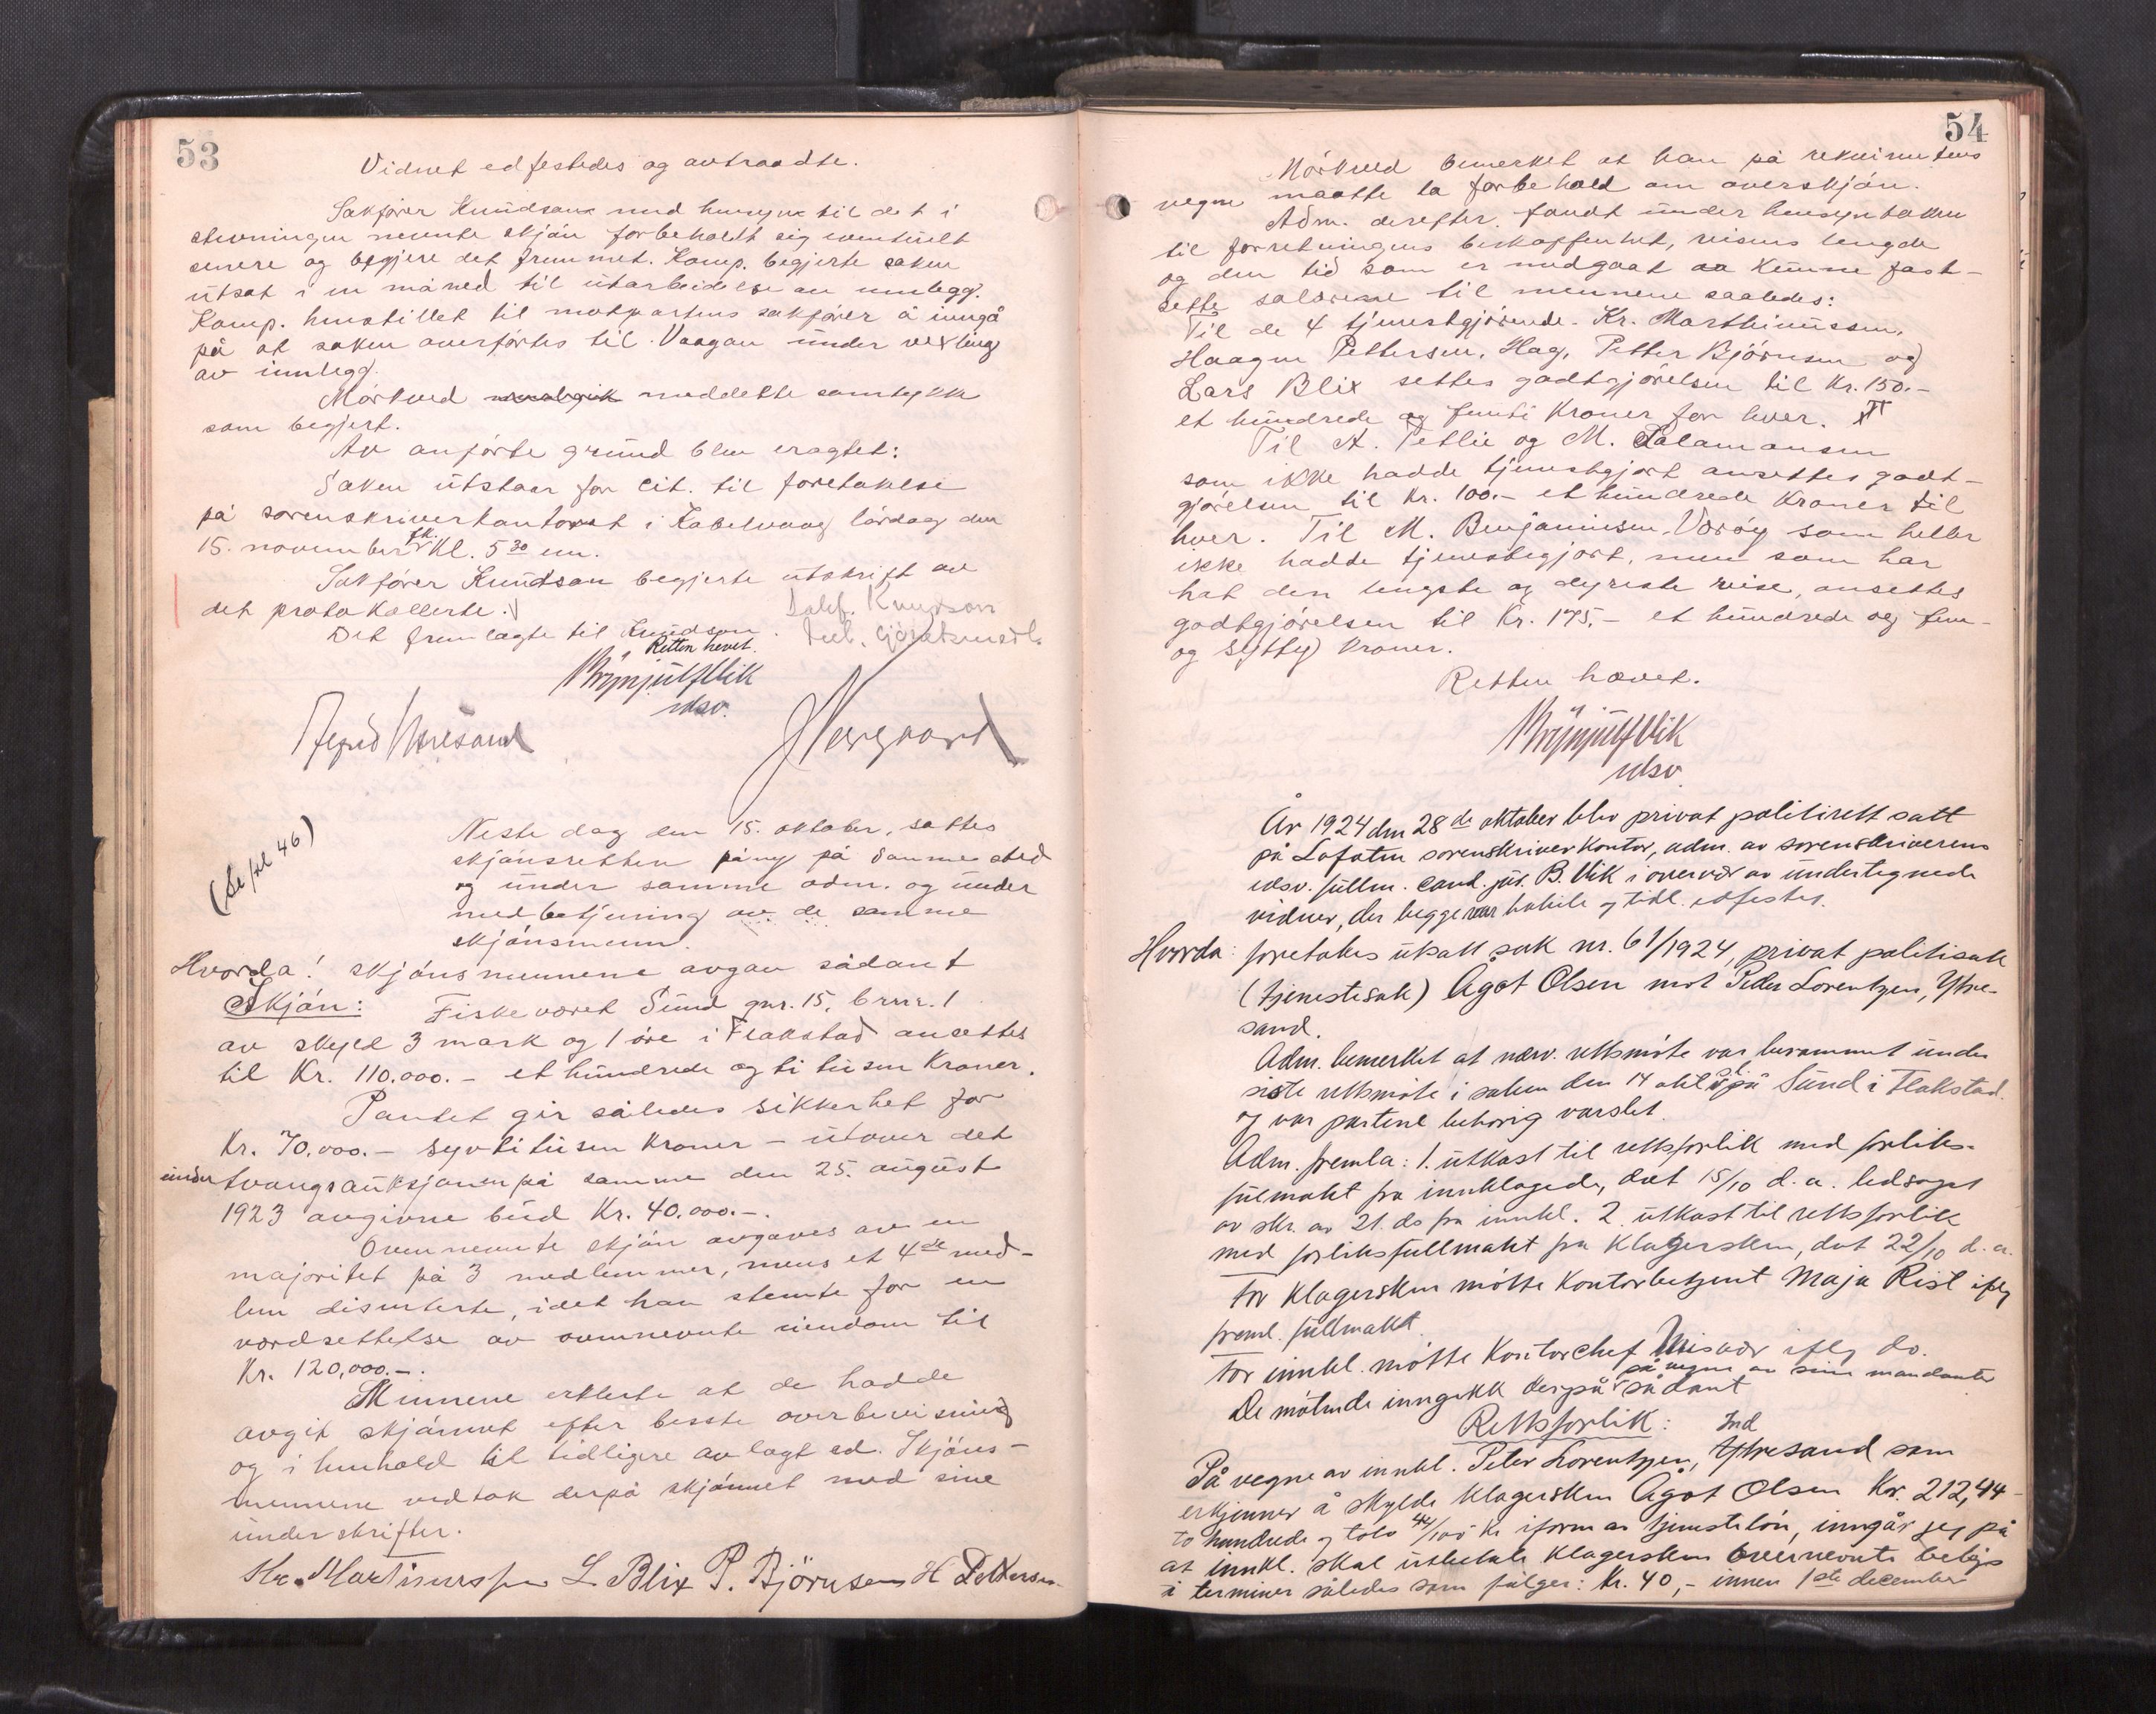 53
Vidnet edfestedes og avtraadte.
Sakfører Knudsen med hensyn til det i
stevningen nevnte skjøn forbeholdt sig eventuelt
senere og begjere det fremmet. Komp. begjerte saken
utsat i en måned til utarbeidelse av innlegg.
Komp. henstillet til motpartens sakfører å inngå
på at saken overførtes til Vaagan under vexling
av innlegg.
Mörkved meddelte samtykke
som begjert.
Av anførte grund blev eragtet:
Saken utstaar for cit. til foretakelse
på sorenskriverkontoret i Kabelvaag lördag den
15. november fk. Kl. 5 30 em.
Sakfører Knudsen begjerte utskrift av
det protokollerte.
Sakf. Knudson
Det fremlagte til Knudsen.
Retten hevet.
Brynjulf Vik
edsv.
(Se fol 46)
Neste dag den 15. oktober, sattes
skjønsretten påny på samme sted
og under samme adm. og under
medbetjening av de samme
skjønsmenn.
Hvorda! skjønsmennene avgav sådant
Skjøn: Fiskeværet Sund gnr. 15, brnr. 1
av skyld 3 mark og 1 øre i Flakstad ansettes
til Kr. 110.000.- et hundrede og ti tusen Kroner.
Pantet gir således sikkerhet for
Kr. 70.000.- syvti tusen Kroner - utover det
under tvangsauksjonen på samme den 25. august
1923 avgivne bud Kr. 40.000.-.
Ovennevnte skjøn avgaves av en
majoritet på 3 medlemmer, mens et 4de med-
lem disenterte, idet han stemte for en
verdsettelse av ovennevnte eiendom til
Kr. 120,000.-.
Mennene erklerte at de hadde
avgit skjønnet efter beste overbevisning
og i henhold til tidligere avlagt ed. Skjøns-
mennene vedtok derpå skjønnet med sine
underskrifter.
Kr. Martinussen L Blix P. Björnsen H Pettersen
54
Mörkved bemerket at han på rekvirentens
vegne maatte ta forbehold om overskjøn.
Adm. derefter fandt under hensyntaken
til forretningens beskaffenhet, reisens lengde
og den tid som er medgaat aa kunne fast-
sette salærene til mennene saaledes:
Til de 4 tjenestgjørende. Kr. Marthinussen,
Haagen Pettersen, Hag, Petter Bjørnsen og
Lars Blix settes godtgjørelsen til Kr. 150.-
et hundrede og femti Kroner for hver.
Til A. Petlie og M. Salamonsen
som ikke hadde tjenestgjort ansettes godt-
gjørelsen til Kr. 100.- et hundrede Kroner til
hver. Til M. Benjaminsen, Værøy som heller
ikke hadde tjenestegjort, men som har
hat den lengste og dyreste reise, ansettes
godtgjørelsen til Kr. 175.- et hundrede og fem-
og sytty Kroner.
Retten hævet.
Brynjulf Vik
edsv.
År 1924 den 28de oktober blev privat politirett satt
på Lofoten sorenskriverkontor, adm. av sorenskriverens
edsv. fullm. cand. jur. B. Vik i overvær av undertegnede
vidner, der begge var habile og tidl. edfestet.
Hvorda: foretokes utsatt sak nr. 61/1924, privat politisak
(tjenestesak) Ågot Olsen mot Peder Lorentzen, Ytre-
sand.
Adm. bemerket at nærv. rettsmøte var berammet under
siste rettsmøte i saken den 14 okt. på Sund i Flakstad.
og var partene behørig varslet.
Adm. fremla: 1. utkast til rettsforlik med forliks-
fulmakt fra innklagede, dat 15/10 d. a. ledsaget
av skr. av 21. ds fra innkl. 2. utkast til rettsforlik
med forliksfullmakt fra klagersken, dat 22/10 d. a.
For klagersken møtte kontorbetjent Maja Rist iflg
freml. fullmakt.
For innkl. møtte Kontorchef Misvær iflg do.
De møtende inngikk derpå på vegne av sine mandanter sådant
Rettsforlik:
På vegne av innkl. Peter Lorentzen, Ytresand som
erkjenner å skylde klagersken Ågot Olsen Kr. 212,44-
to hundrede og tolv 44/100 Kr i form av tjenestelön, inngår jeg på
at innkl. skal utbetale klagersken ovennevnte beløp
i terminer således som følger: Kr. 40,- innen 1ste december